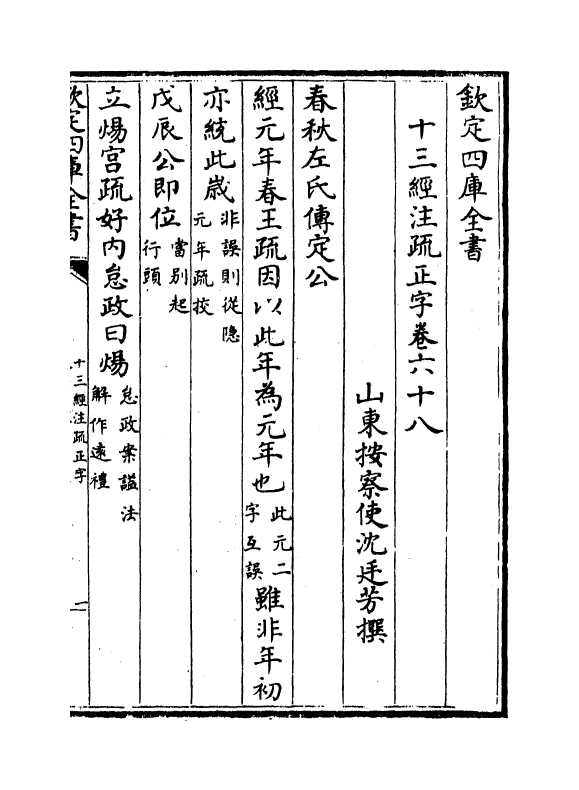 欽定四庫全書
十三經注疏正字卷六十八
山東按察使沈廷芳撰
春秋左氏傳定公
經元年春王疏因以此年為元年也此元二字互誤雖非年初
亦統此歲非誤則從隱元年疏挍
戊辰公即位當別起行頭
立煬宫疏好内怠政曰煬怠政案諡法解作遠禮
欽定四庫全書
十三經注疏正字
一